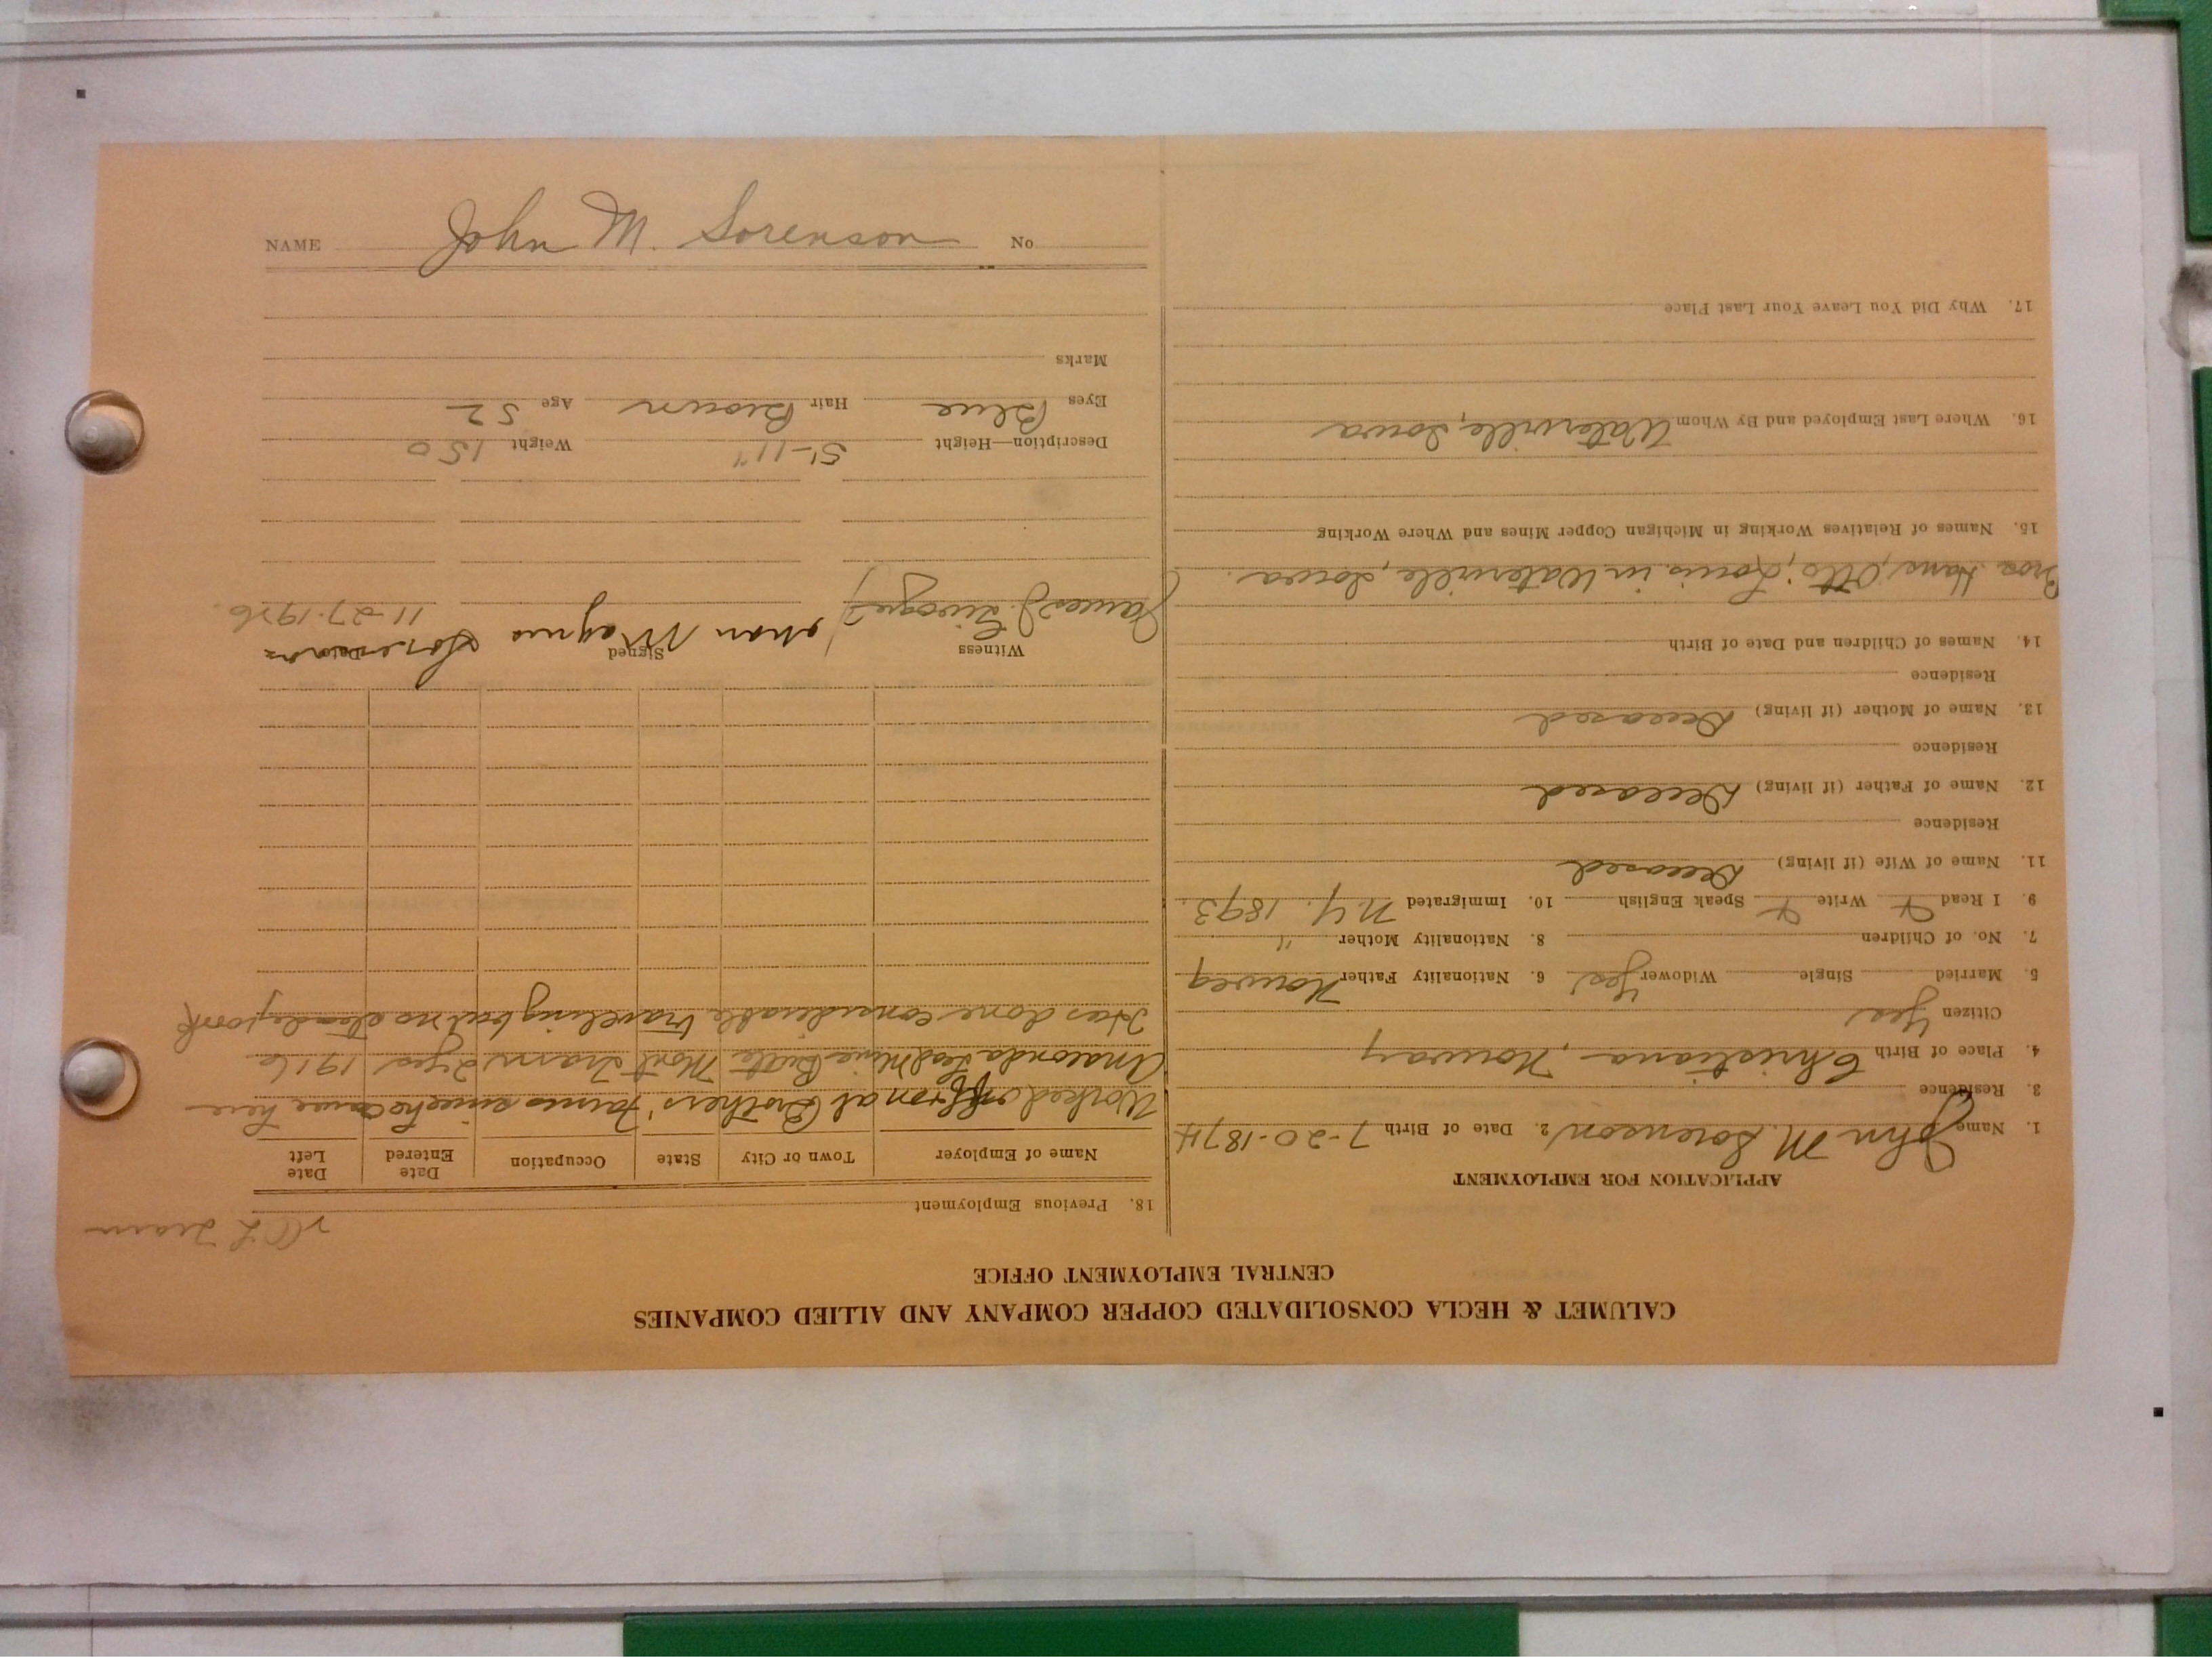 CALUMET & HECLA CONSOLIDATED COPPER COMPANY AND ALLIED COMPANIES
CENTRAL EMPLOYMENT OFFICE
APPLICATION FOR EMPLOYMENT
1. Name John M. Sorenson 2. Date of Birth 7-20-1874
3. Residence
4. Place of Birth Christiana, Norway
Citizen Yes
5. Married Single Widower Yes 6. Nationality Father Norweg
7. No. of Children 8. Nationality Mother "
9. I Read Write Speak English 10. Immigrated N.Y. 1893.
11. Name of Wife (if living) Deceased
Residence
12. Name of Father (if living) Deceased
Residence
13. Name of Mother (if living) Deceased
Residence
14. Names of Children and Date of Birth
Bros. Hans, Otto, Louis in Waterville, Iowa.
15. Names of Relatives Working in Michigan Copper Mines and Where Working
16. Where Last Employed and By Whom Waterville, Iowa
17. Why Did You Leave Your Last Place
Tram
18. Previous Employment
Name of Employer Town or City State Occupation Date Entered Date Left
Worked off & on at Brothers' Farms since he came here
Anaconda Mine Butte Mont Tram 2 yrs 1916
Has done considerable traveling but no steady work
Witness Signed Date
James J. Johan Magnus Sorensen 11-27-1926.
Description—Height 5'-11" Weight 150
Eyes Blue Hair Brown Age 52
Marks
NAME John M. Sorenson No